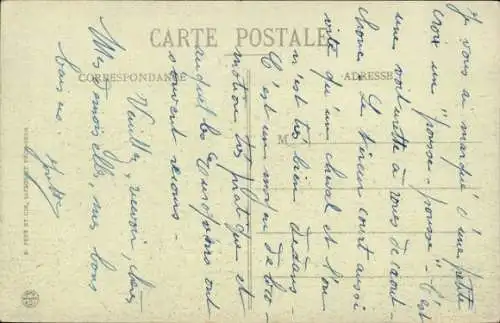 CARTE POSTALE
CORRESPONDANCE
ADRESSE
M
Je vous ai marqué d'une petite
croix un "pousse-pousse". C'est
une voiturette à roues de caout-
chouc. Le tireur court aussi
vite qu'un cheval et l'on
n'est très bien dedans.
C'est un moyen de loco-
motion très pratique et
auquel les Européens ont
souvent recours.
Veuillez recevoir, chères
Mesdemoiselles, mes bons
baisers